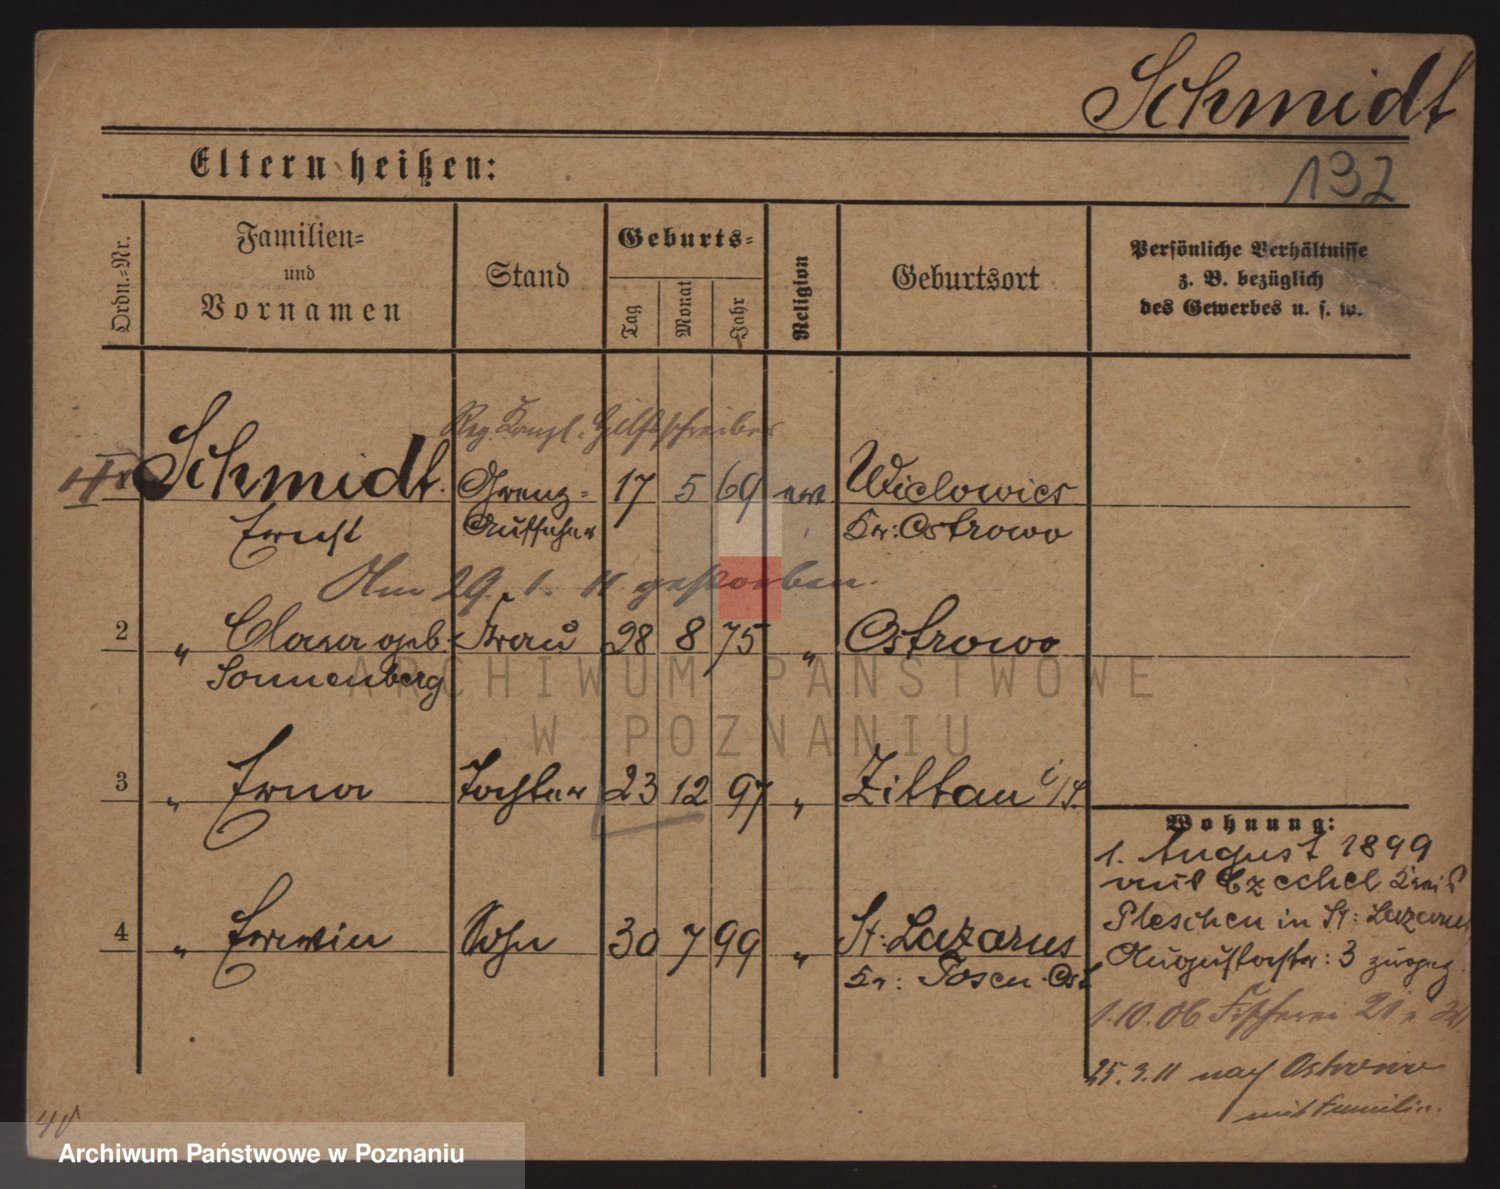 Schmidt
Eltern heißen:
132
Ordn.-Nr.
Familien-
und
Vornamen
Stand
Geburts-
Tag
Monat
Jahr
Religion
Geburtsort
Persönliche Verhältnisse
z. B. bezüglich
des Gewerbes u. s. w.
Reg. Kanzl. Hilfsschreiber
Schmidt Grenz- 17 5 69 Wielowies
Ernst Aufseher Kr: Ostrowo
Am 29. 1. 11 gestorben.
2 " Clara geb. Frau 28 8 75 " Ostrowo
Sonnenberg
3 " Erna Tochter 23 12 97 " Zittau i/S.
4 " Erwin Sohn 30 7 99 " St. Lazarus
Kr: Posen Ost
Wohnung:
1. August 1899
aus Czechel Kreis
Pleschen in St: Lazarus
Augustastr: 3 zugez.
1.10.06 Fischerei 21
25.3.11 nach Ostrowo
mit Familie.
ARCHIWUM PAŃSTWOWE
W POZNANIU
Archiwum Państwowe w Poznaniu